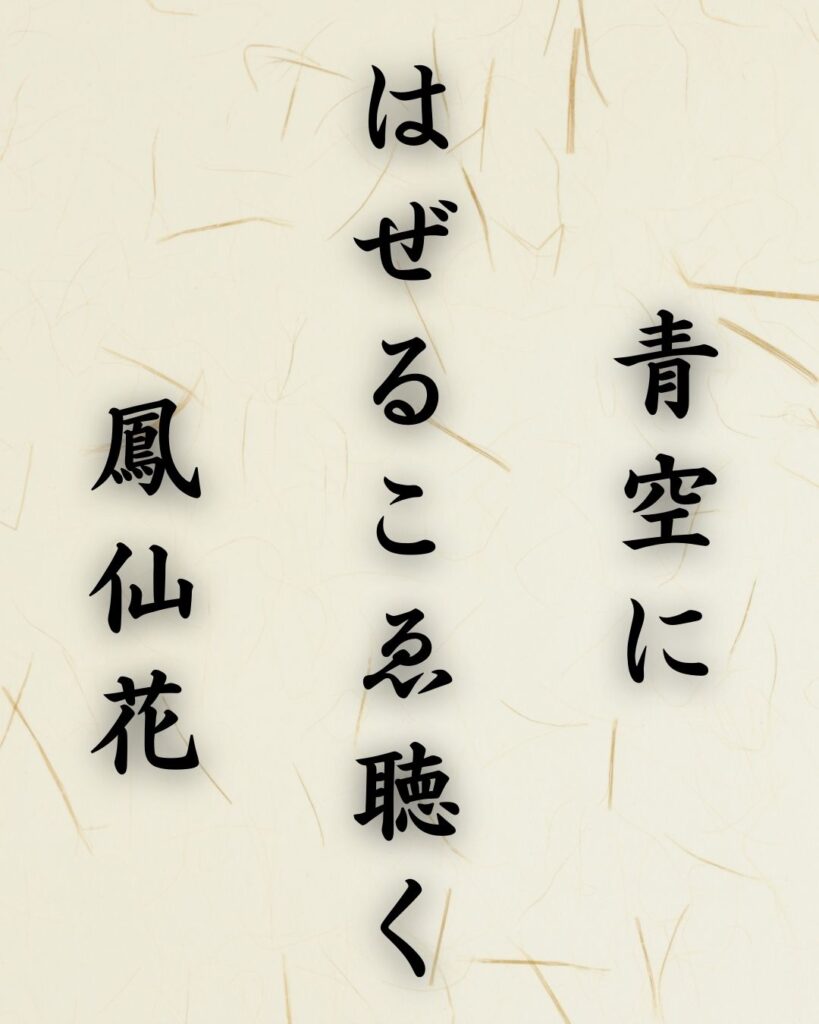 青空に
はぜるこゑ聴く
鳳仙花